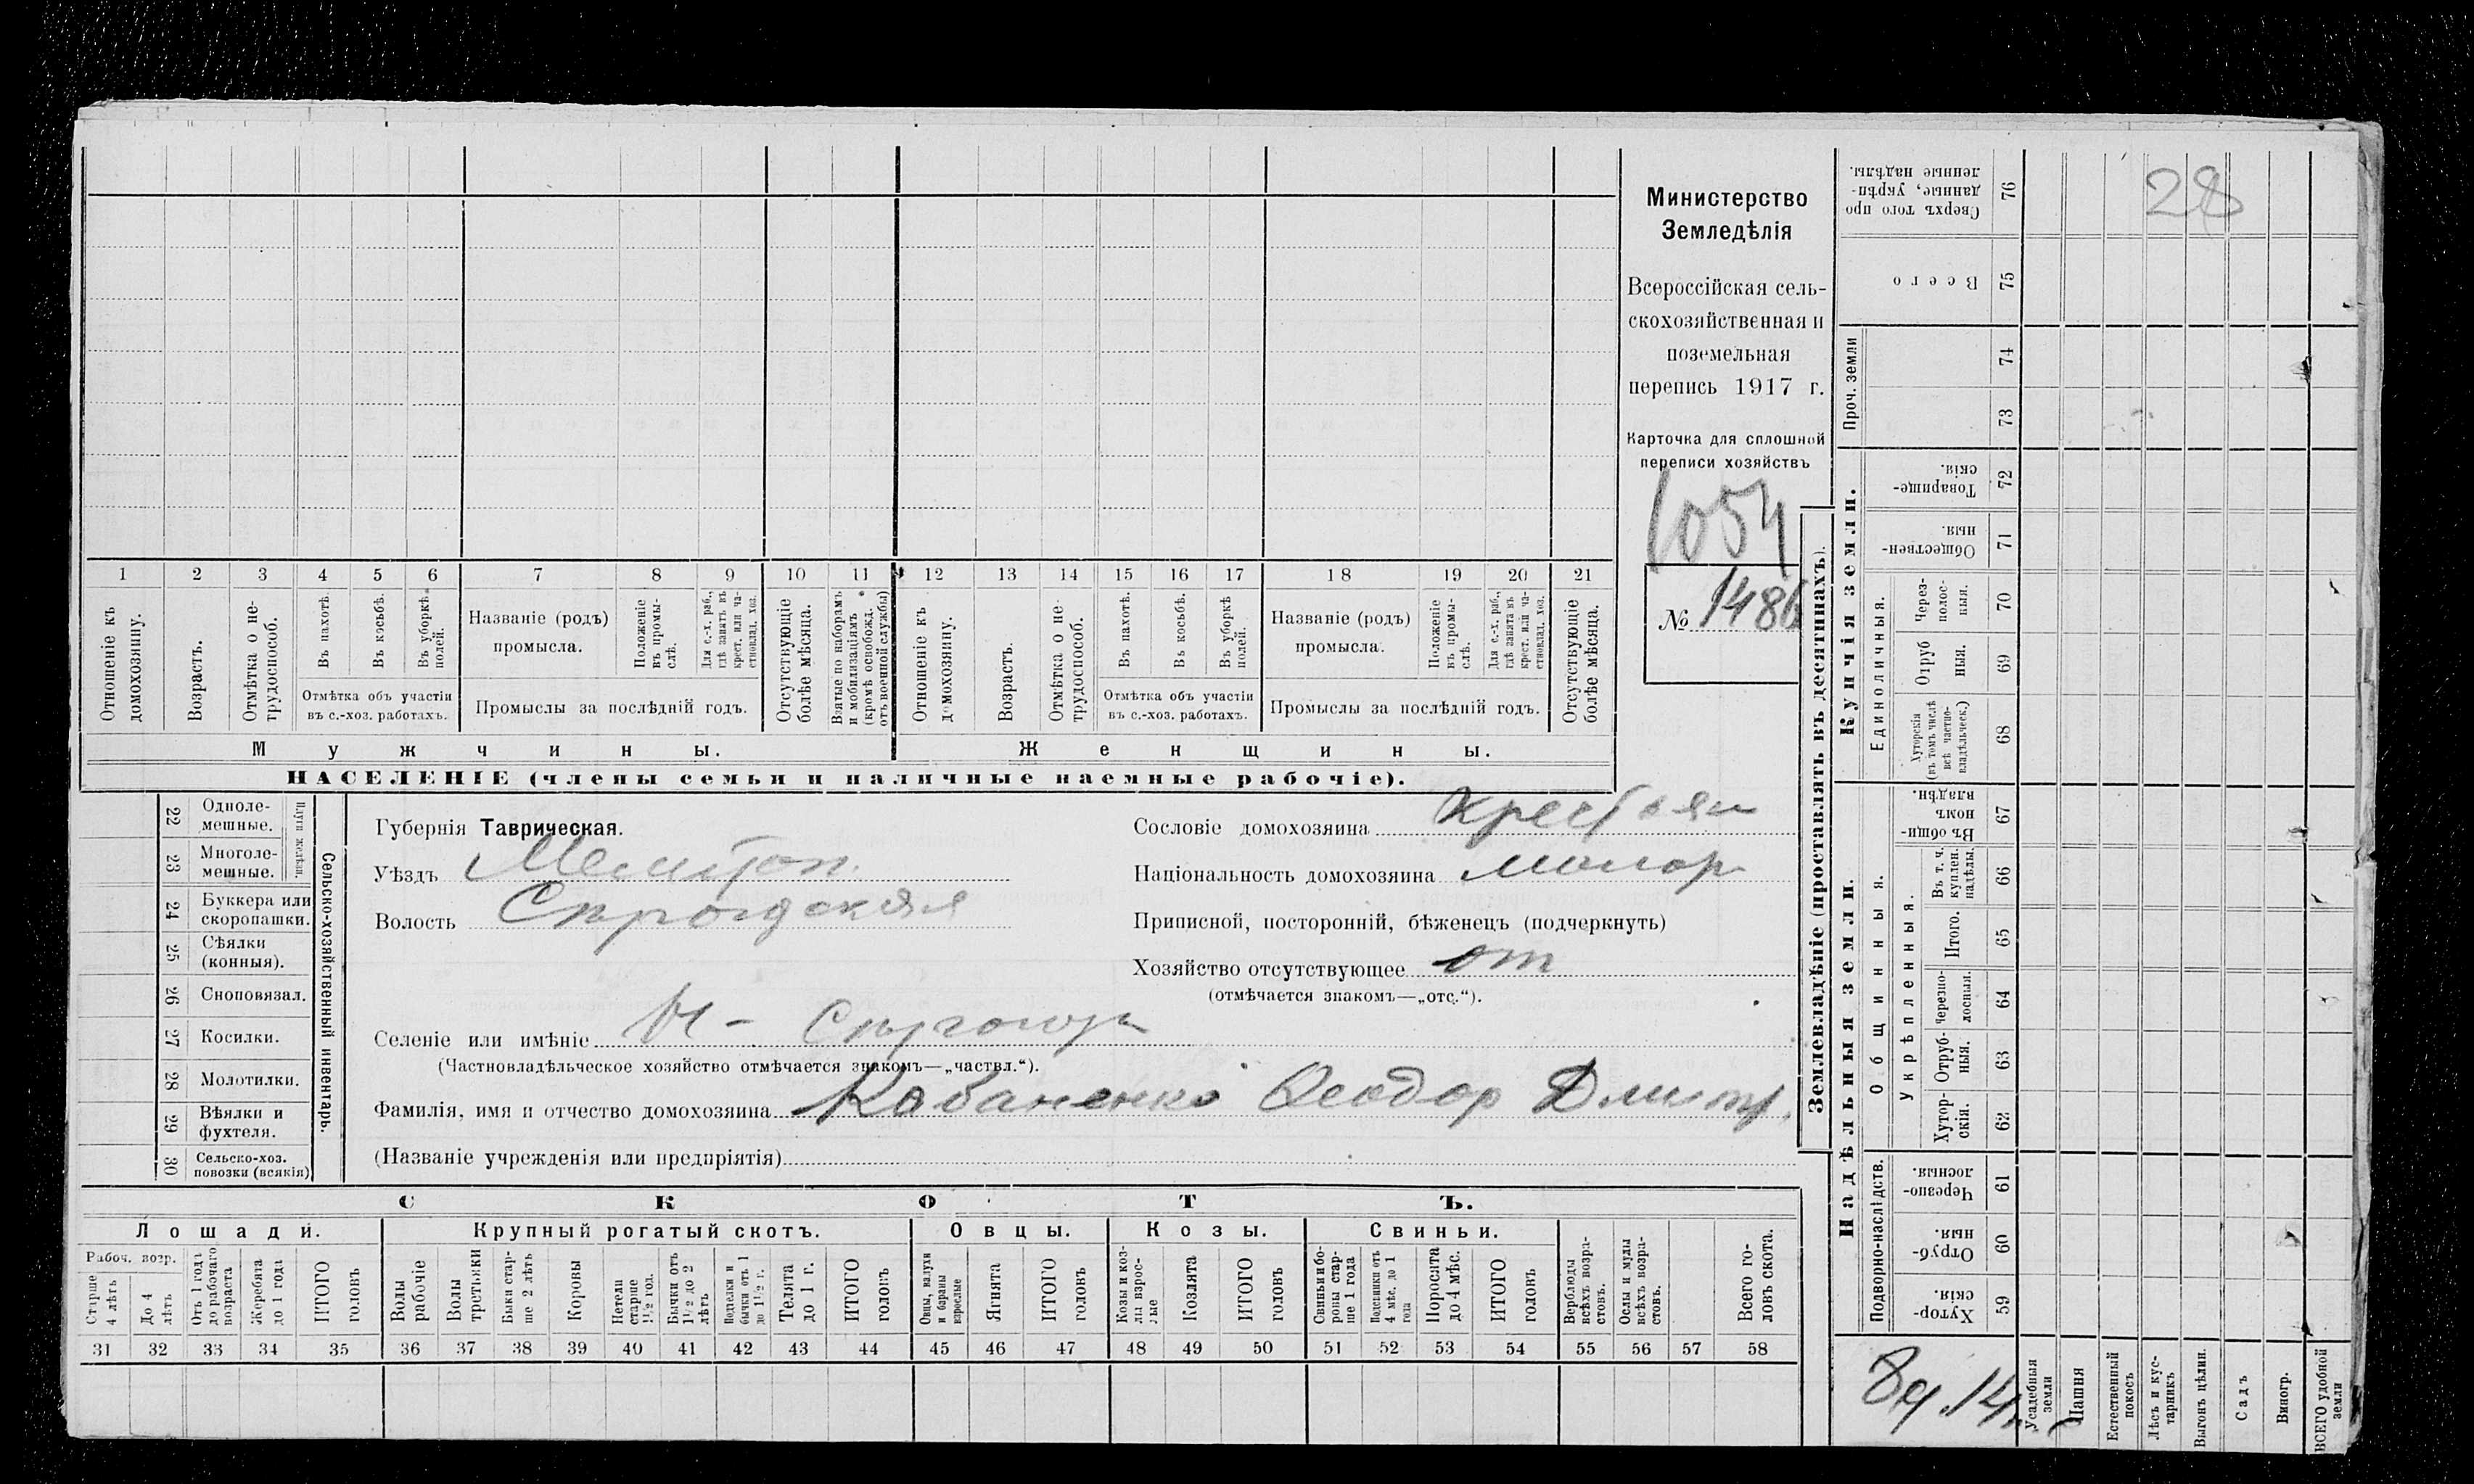 Министерство
Земледѣлія
Всероссійская сель-
скохозяйственная и
поземельная
перепись 1917 г.
Карточка для сплошной
переписи хозяйствъ
1054
№ 1486
1 2 3 4 5 6 7 8 9 10 11 12 13 14 15 16 17 18 19 20 21
Отношеніе къ домохозяину.
Возрастъ.
Отмѣтка о не-трудоспособ.
Въ пахотѣ.
Въ косьбѣ.
Въ уборкѣ полей.
Отмѣтка объ участіи
въ с.-хоз. работахъ.
Названіе (родъ)
промысла.
Положеніе въ промы-слѣ.
Для с.-х. раб., гдѣ занятъ въ крест. или ча-стновлад. хоз.
Промыслы за послѣдній годъ.
Отсутствующіе болѣе мѣсяца.
Взятые по наборамъ и мобилизаціямъ (кромѣ освобожд. отъ военной службы)
Отношеніе къ домохозяину.
Возрастъ.
Отмѣтка о не-трудоспособ.
Въ пахотѣ.
Въ косьбѣ.
Въ уборкѣ полей.
Отмѣтка объ участіи
въ с.-хоз. работахъ.
Названіе (родъ)
промысла.
Положеніе въ промы-слѣ.
Для с.-х. раб., гдѣ занята въ крест. или ча-стновлад. хоз.
Промыслы за послѣдній годъ.
Отсутствующіе болѣе мѣсяца.
Мужчины. Женщины.
НАСЕЛЕНІЕ (члены семьи и наличные наемные рабочіе).
Сельско-хозяйственный инвентарь.
Плуги желѣзн.
22 Одноле-мешные.
23 Многоле-мешные.
24 Буккера или скоропашки.
25 Сѣялки (конныя).
26 Сноповязал.
27 Косилки.
28 Молотилки.
29 Вѣялки и фухтеля.
30 Сельско-хоз. повозки (всякія)
Губернія Таврическая.
Уѣздъ Мелитоп.
Волость
Селеніе или имѣніе
(Частновладѣльческое хозяйство отмѣчается знакомъ—„частвл.“).
Фамилія, имя и отчество домохозяина Кабаненко Феодор Дмитр.
(Названіе учрежденія или предпріятія)
Сословіе домохозяина крестьян
Національность домохозяина малор
Приписной, посторонній, бѣженецъ (подчеркнуть)
Хозяйство отсутствующее от
(отмѣчается знакомъ—„отс.“).
СКОТЪ.
Лошади. Крупный рогатый скотъ. Овцы. Козы. Свиньи.
Рабоч. возр.
Старше 4 лѣтъ
До 4 лѣтъ
Отъ 1 года до рабочаго возраста
Жеребята до 1 года
ИТОГО головъ
Волы рабочіе
Волы третьяки
Быки стар-ше 2 лѣтъ
Коровы
Нетели старше 1½ год.
Бычки отъ 1½ до 2 лѣтъ
Подтелки и бычки отъ 1 до 1½ г.
Телята до 1 г.
ИТОГО головъ
Овцы, валухи и бараны взрослые
Ягнята
ИТОГО головъ
Козы и коз-лы взрос-лые
Козлята
ИТОГО головъ
Свиньи и бо-ровы стар-ше 1 года
Подсвинки отъ 4 мѣс. до 1 года
Поросята до 4 мѣс.
ИТОГО головъ
Верблюды всѣхъ возра-стовъ.
Ослы и мулы всѣхъ возра-стовъ.
Всего го-ловъ скота.
31 32 33 34 35 36 37 38 39 40 41 42 43 44 45 46 47 48 49 50 51 52 53 54 55 56 57 58
Землевладѣніе (проставлять въ десятинахъ).
Надѣльныя земли.
Подворно-наслѣдств.
Хутор-скія. 59
Отруб-ныя. 60
Черезпо-лосныя. 61
Общинныя.
Укрѣпленныя.
Хутор-скія. 62
Отруб-ныя. 63
Черезпо-лосныя. 64
Итого. 65
Въ т. ч. куплен. надѣлы. 66
Въ общин-номъ владѣн. 67
Купчія земли.
Единоличныя.
Хуторскія (въ томъ числѣ всѣ частно-владѣльческ.) 68
Отруб-ныя. 69
Через-полос-ныя. 70
Обществен-ныя. 71
Товарище-скія. 72
Проч. земли
73
74
Всего 75
Сверхъ того про-данные, укрѣп-ленные надѣлы. 76
28
Усадебныя земли
Пашня
Естественный покосъ
Лѣсъ и кус-тарникъ
Выгонъ цѣлин.
Садъ
Виногр.
ВСЕГО удобной земли